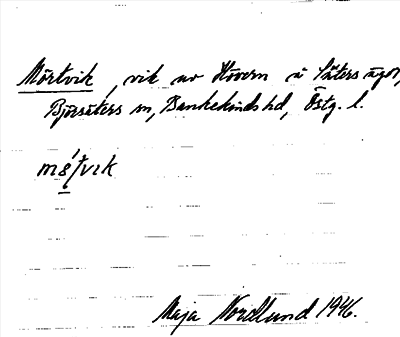 Mörtvik, vik av Hövern å Säters ägor,
Björsäters sn, Bankekinds hd, Östg. l.
Maja Nordlund 1946.